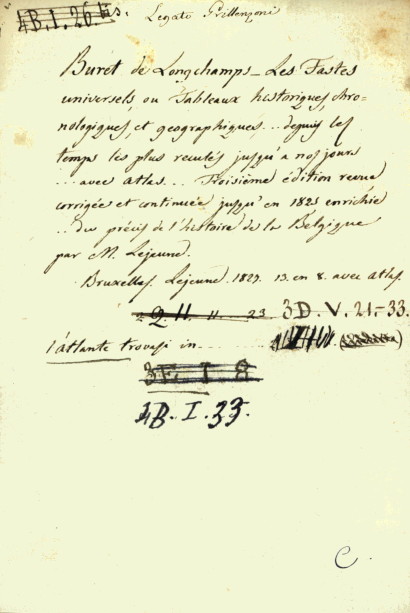 4B.I.26 bis. Legato Grillenzoni
Buret de Longchamps_ Les Fastes
universels, ou Tableaux historiques, chro-
nologiques, et geographiques... depuis les
temps les plus reculés jusqu'a nos jours
... avec atlas... Troisième édition revue
corrigée et continuée jusqu'en 1823 enrichie
.. du précis de l'histoire de la Belgique
par M. Lejeune.
Bruxelles. Lejeune. 1823. 13. en 8. avec atlas.
2. 11. 11. 23 3D.V.21.-33.
l'atlante trovasi in
3E I 8
4B.I.33.
C.